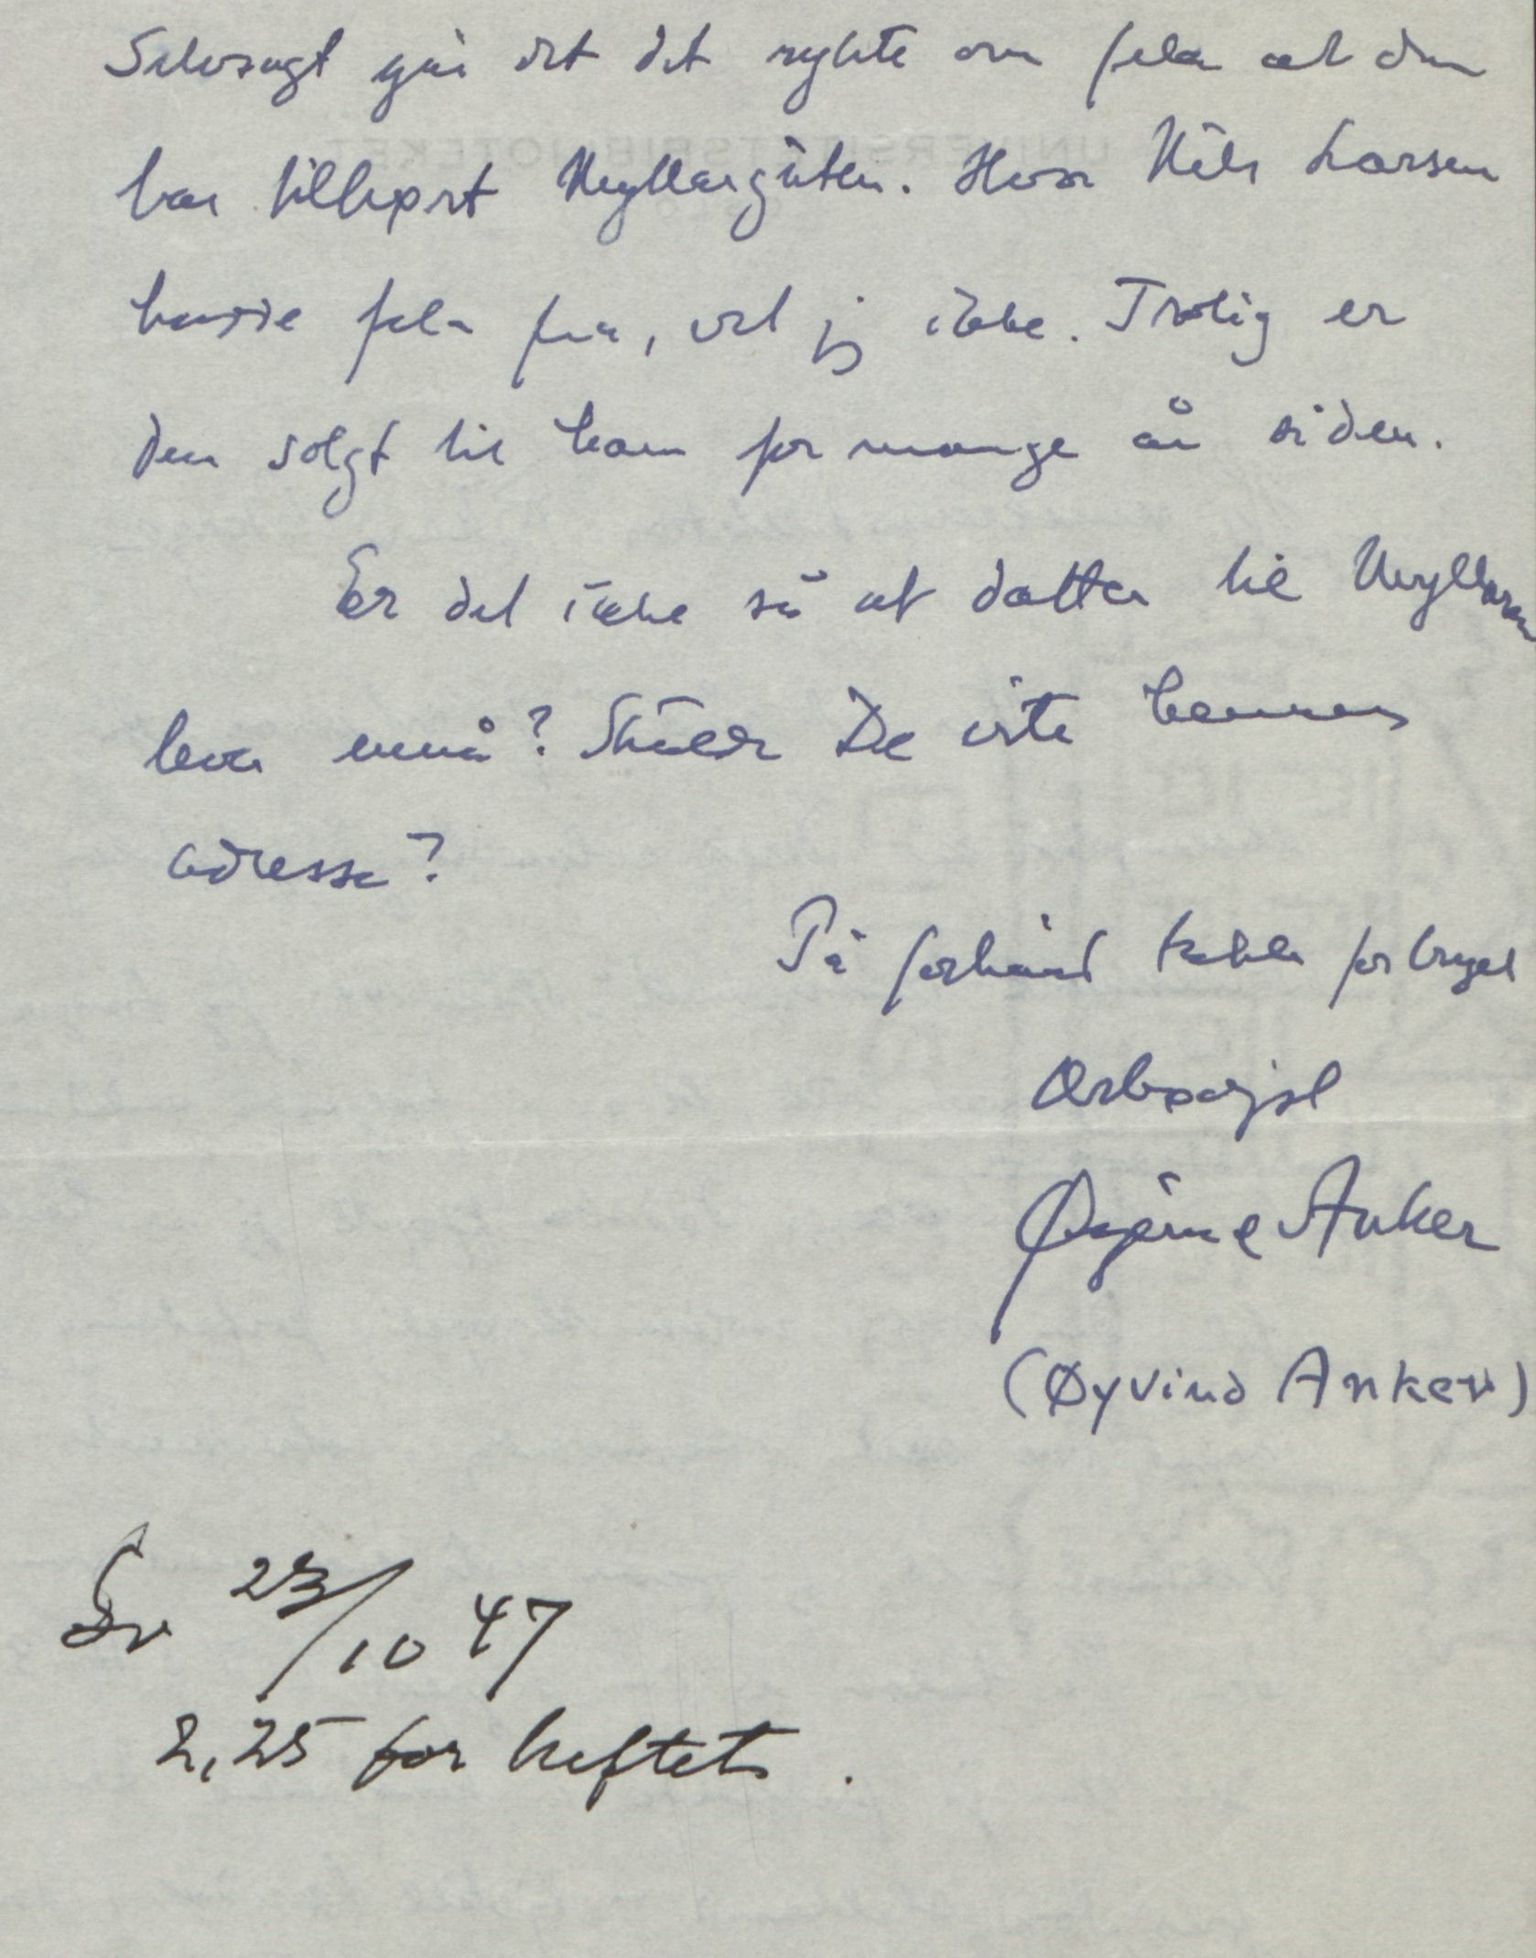 Selvsagt går det det rykte om fela at den
har tilhørt Myllarguten. Hvor Nils Larsen
hadde fela fra, vet jeg ikke. Trolig er
den solgt til ham for mange år siden.
Er det ikke så at datter til Myllaren
lever ennå? Skulde De vite hennes
adresse?
På forhånd takk for bryet
Ærbødigst
Øyvind Anker
(Øyvind Anker)
Sv 23/10 47
2,25 for heftet.